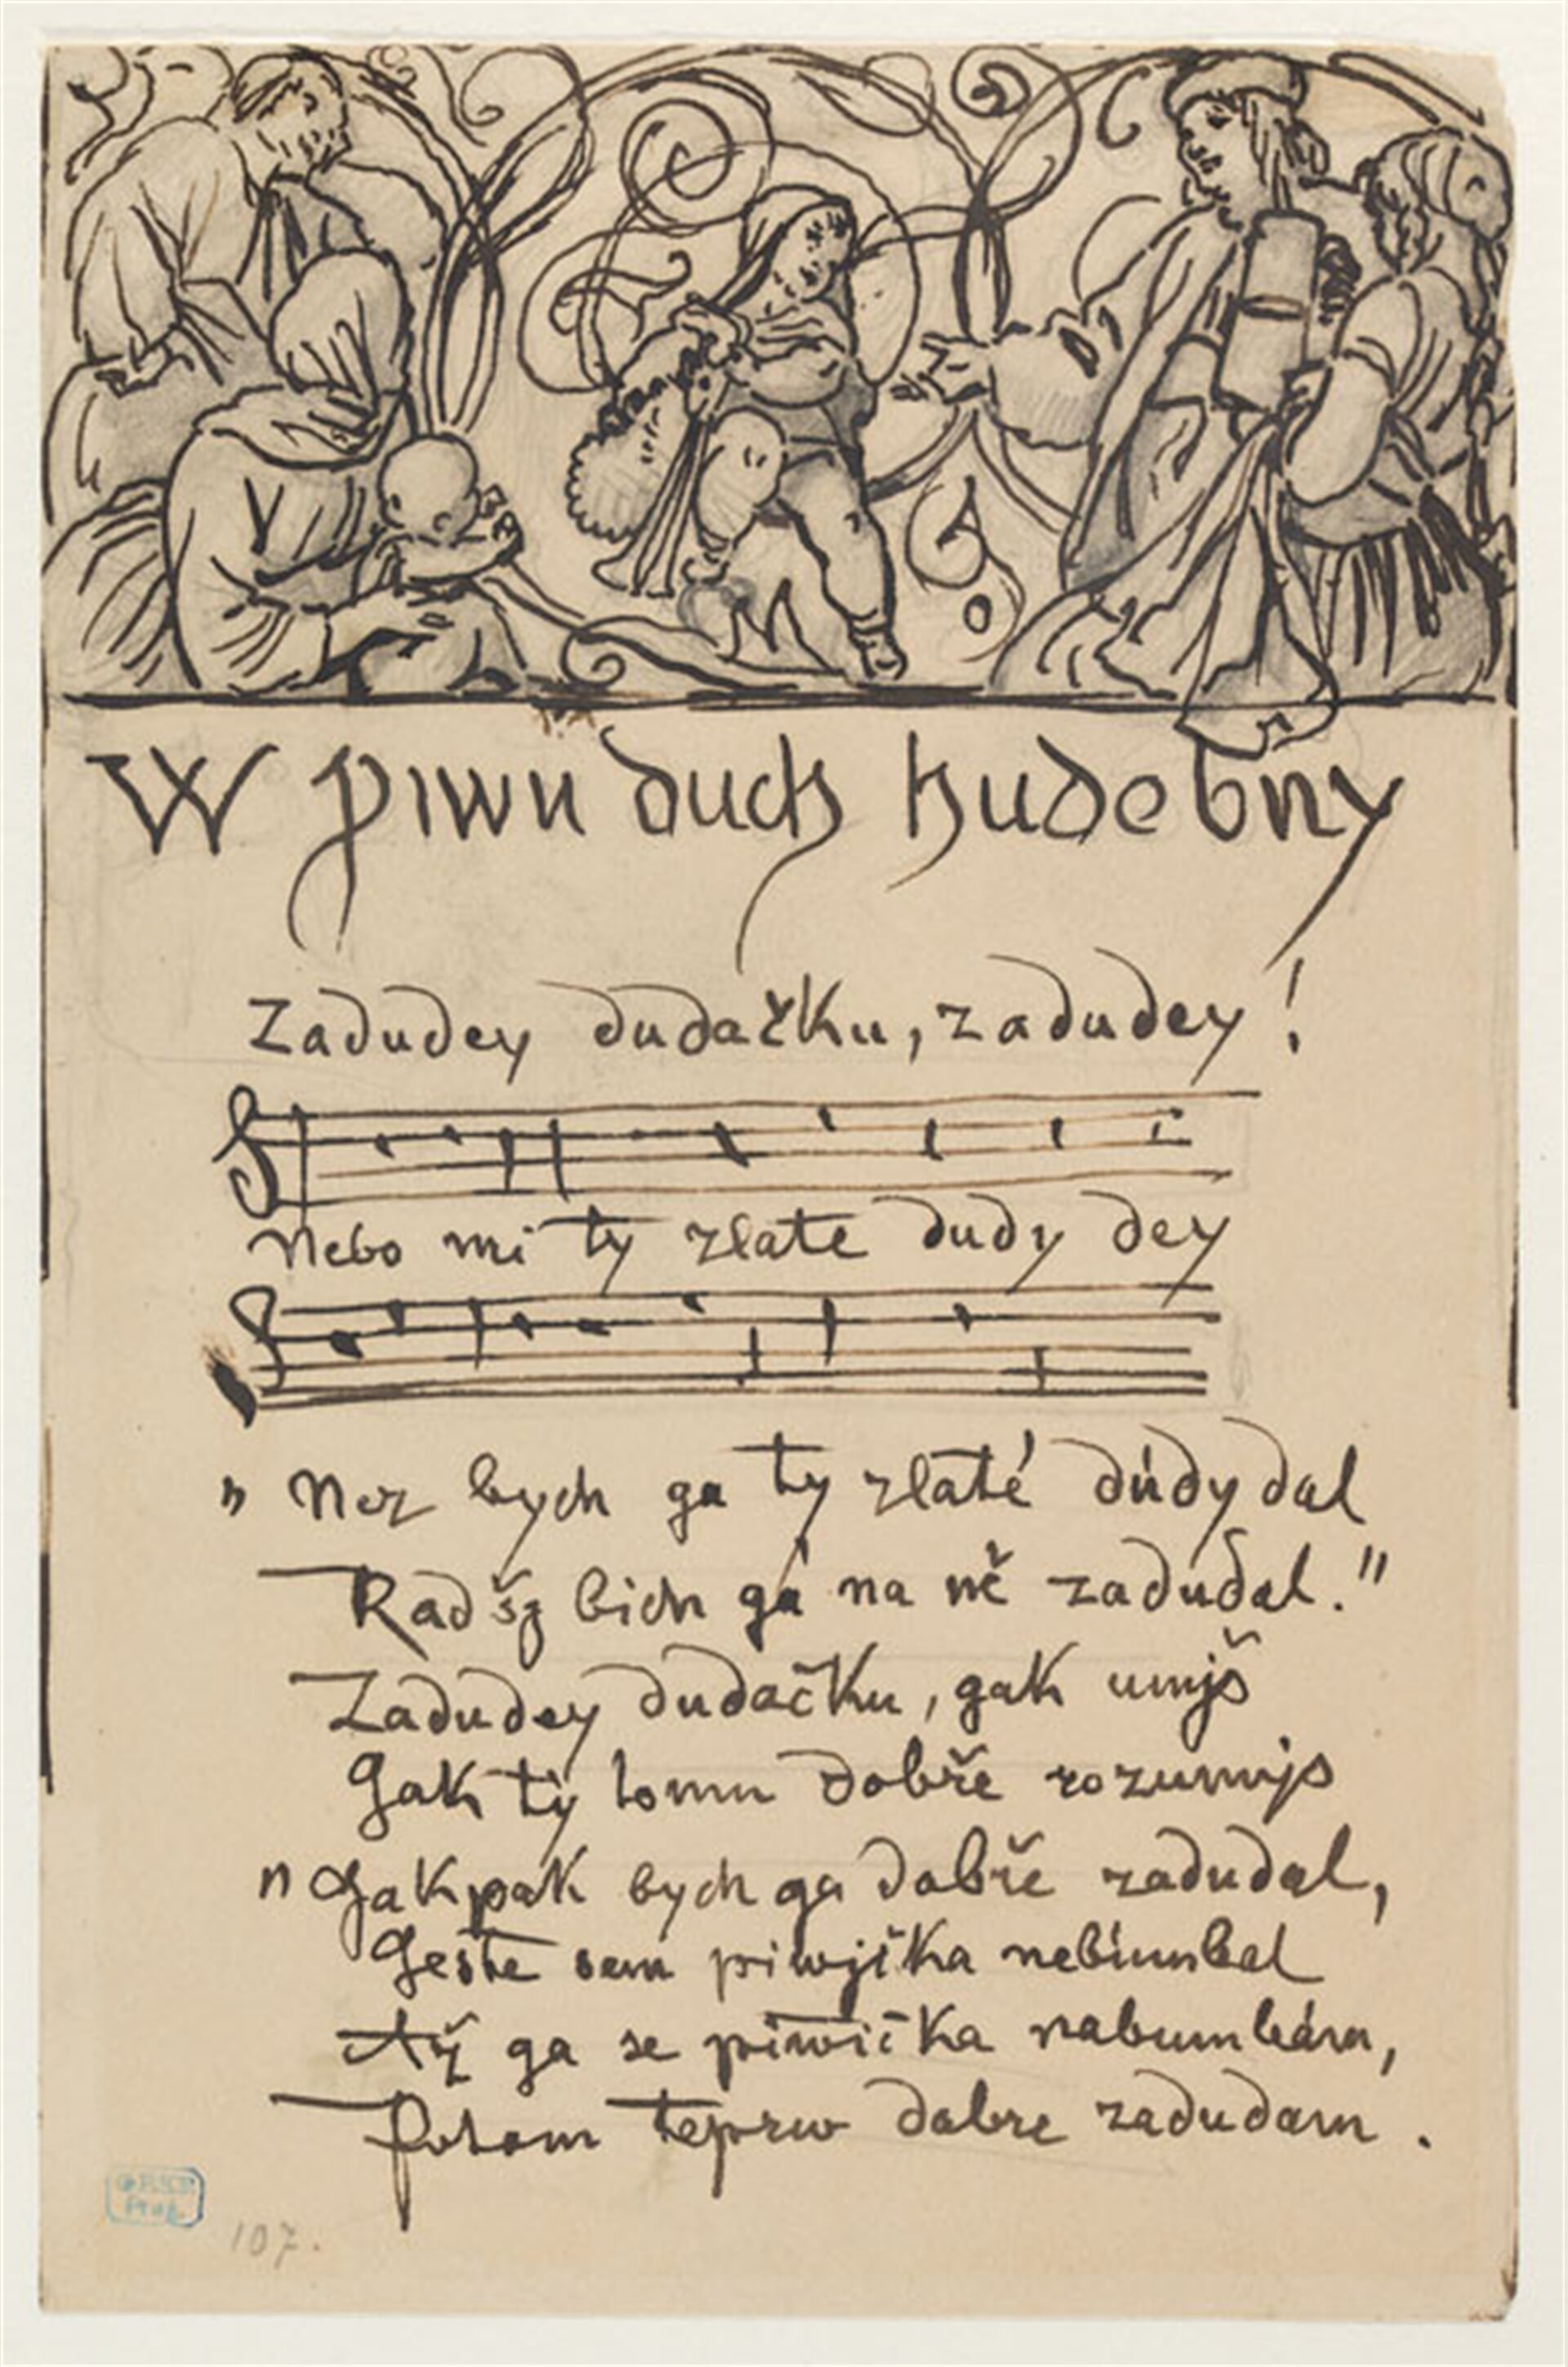 W piwu duch hudebny
Zadudey dudačku, zadudey!
Nebo mi ty zlate dudy dey
„Nez bych ga ty zlaté dúdy dal
Radšg bich gá na ně zadudal."
Zadudey dudačku, gak umjš
Gak ty tomu dobře rozumjs
„Gakpak bych ga dobře zadudal,
Geste sem piwjčka nebumbal
Až ga se piwička nabumbám,
Potom teprw dobre zadudam.
107.